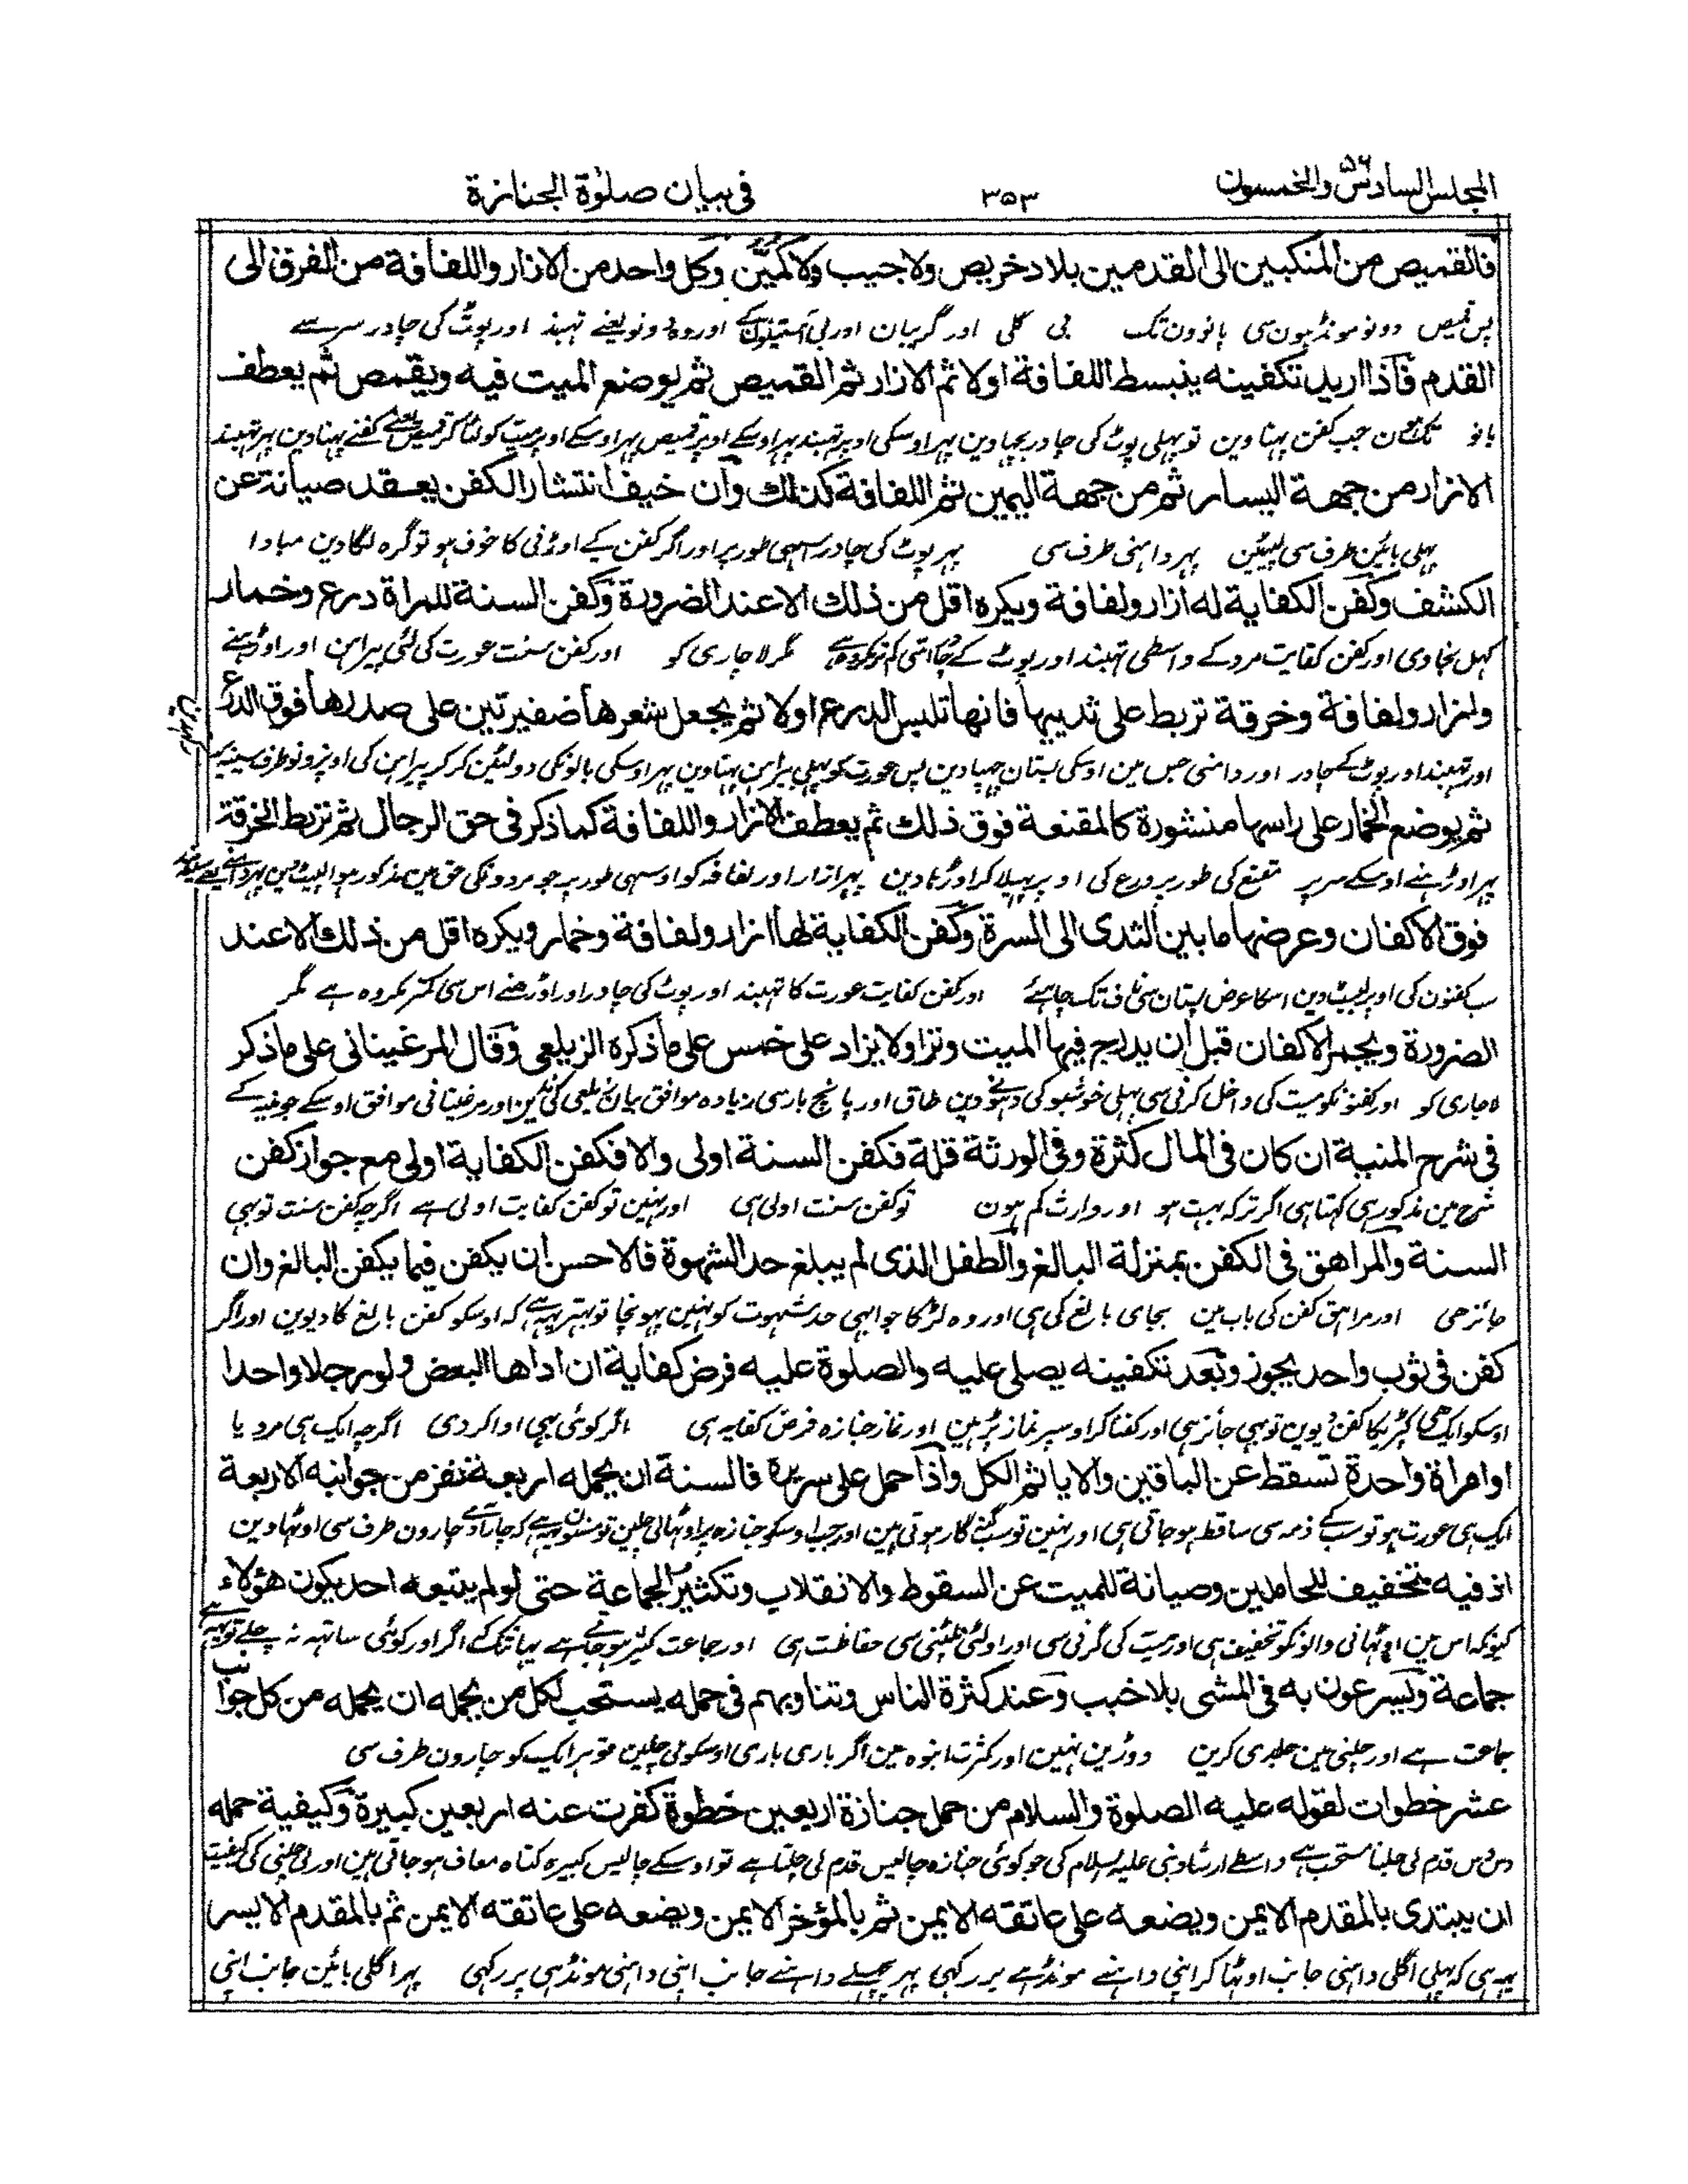 المجلس السادس والخمسون ۵۶
۳۵۳
فی بیان صلوٰۃ الجنازۃ
فالقمیص من المنکبین الی القدمین بلا دخریص ولا جیب ولا کمین وکل واحد من الازار واللفافة من الفرق الی
پس قمیص دونو مونڈہون سی پانوون تک بی کلی اور گریبان اور بی آستینوں کے اور وہ دونو یعنے تہبند اور پوٹ کی چادر سر سے
القدم فاذا ارید تکفینه ینبسط اللفافة اولا ثم الازار ثم القمیص ثم یوضع المیت فیه ویقمص ثم یعطف
پانو تک جب کفن پہناوین تو پہلی پوٹ کی چادر بچہاوین پہر اوسکی اوپر تہبند پہر اوسکے اوپر قمیص پہر اوسکے اوپر میت کو لٹا کر قمیص کفنے پہناوین پہر تہبند
الازار من جهة الیسار ثم من جهة الیمین ثم اللفافة کذلك وان خیف انتشار الکفن یعقد صیانة عن
پہلی بائین طرف سی لپیٹین پہر داہنی طرف سی پہر پوٹ کی چادر اسہی طور پر اور اگر کفن کے اوڑنی کا خوف ہو تو گرہ لگادین مبادا
الکشف وکفن الکفایة له ازار ولفافة ویکره اقل من ذلك الا عند الضرورة وکفن السنة للمراة درع وخمار
کہل نجاوی اور کفن کفایت مرد کے واسطی تہبند اور پوٹ کے مگر لاچاری کو اور کفن سنت عورت کی لئی پیراہن اور اوڑہنے
وازار ولفافة وخرقة تربط علی ثدییها فانها تلبس الدرع اولا ثم یجعل شعرها ضفیرتین علی صدرها فوق الدرع
اور تہبند اور پوٹ کے چادر اور دامنی جس مین اوسکی پستان چہپادین پس عورت کو پہلی پیراہن پہناوین پہر اوسکی بالونکی دو لٹین کر کر پیراہن کی اوپر دونو طرف سینہ
ثم یوضع الخمار علی راسها منشورة کالمقنعة فوق ذلك ثم یعطف الازار واللفافة کما ذکر فی حق الرجال ثم تربط الخرقة
پہر اوڑہنے اوسکے سر پر مقنع کی طور پر درع کی اوپر پہیلا کر اوڑہادین پہر ازار اور لفافہ کو اوسہی طور پر جو مردونکی حق مین مذکور ہوا لپیٹین پہر
فوق الاکفان وعرضها ما بین الثدی الی السرة وکفن الکفایة لها ازار ولفافة وخمار ویکره اقل من ذلك الا عند
سب کفنون کی اوپر لپیٹ دین اسکا عرض پستان سی ناف تک چاہئے اور کفن کفایت عورت کا تہبند اور پوٹ کی چادر اور اوڑہنے اس سی کمتر مکروہ ہے مگر
الضرورة ویجمر الاکفان قبل ان یدرج فیها المیت وترا ولا یزاد علی خمس علی ما ذکره الزیلعی وقال المرغینانی علی ما ذکر
لاچاری کو اور کفنونکو میت کی داخل کرنی سی پہلی خوشبو کی دہونے دین طاق اور پانچ بار سی زیادہ موافق بیان زیلعی کی اور مرغینانی موافق اوسکے جو منیہ کے
فی شرح المنیة ان کان فی المال کثرة وفی الورثة قلة فکفن السنة اولی والا فکفن الکفایة اولی مع جواز کفن
شرح مین مذکور ہی کہتا ہی اگر ترکہ بہت ہو اور وارث کم ہون تو کفن سنت اولی ہی اور نہین تو کفن کفایت اولی ہے اگرچہ کفن سنت تو بہی
السنة والمراهق فی الکفن بمنزلة البالغ والطفل الذی لم یبلغ حد الشهوة فالاحسن ان یکفن فیما یکفن البالغ وان
جائز ہی اور مراہق کفن کی باب مین بجای بالغ کی ہی اور وہ لڑکا جو ابہی حد شہوت کو نہین پہونچا تو بہتر یہہ ہے کہ اوسکو کفن بالغ کا دیوین اور اگر
کفن فی ثوب واحد یجوز وبعد تکفینه یصلی علیه والصلوة علیه فرض کفایة ان اداها البعض ولو رجلا واحدا
اوسکو ایک ہی کپڑیکا کفن دیوین تو بہی جائز ہی اور کفنا کر اوسپر نماز پڑہین اور نماز جنازہ فرض کفایہ ہی اگر کوئی بہی ادا کردی اگرچہ ایک ہی مرد یا
او امراة واحدة تسقط عن الباقین والا یاثم الکل واذا حمل علی سریرة فالسنة ان یحمله اربعة نفر من جوانبه الاربعة
ایک ہی عورت ہو تو سب کے ذمہ سی ساقط ہو جاتی ہی اور نہین تو سب گنہگار ہوتی ہین اور جب اوسکو جنازہ پر اوٹہا لی چلین تو مسنون یہہ ہے کہ چار آدمی چارون طرف سی اوٹہاوین
اذ فیه تخفیف للحاملین وصیانة للمیت عن السقوط والانقلاب وتکثیر الجماعة حتی لو لم یتبعه احد یکون هؤلاء
کیونکہ اس مین اوٹہانی والونکو تخفیف ہی اور میت کی گرنی سی اور اولٹی پلٹنی سی حفاظت ہی اور جماعت کثیر ہو جاتے ہے یہانتک کہ اگر اور کوئی ساتہہ نہ چلے تو یہہ ہے
جماعة ویسرعون به فی المشی بلا خبب وعند کثرة الناس وتناوبهم فی حمله یستحب لکل من یحمله ان یحمله من کل جوانب
جماعت ہے اور چلنی مین جلدی کرین دوڑین نہین اور کثرت انبوہ مین اگر باری باری اوسکو لی چلین تو ہر ایک کو چارون طرف سی
عشر خطوات لقوله علیه الصلوة والسلام من حمل جنازة اربعین خطوة کفرت عنه اربعین کبیرة وکیفیة حمله
دس دس قدم لی چلنا مستحب ہے واسطے ارشاد نبی علیہ السلام کی جو کوئی جنازہ چالیس قدم لی چلتا ہے تو اوسکے چالیس کبیرہ گناہ معاف ہو جاتی ہین اور لی چلنی کی کیفیت
ان یبتدی بالمقدم الایمن ویضعه علی عاتقه الایمن ثم بالمؤخر الایمن ویضعه علی عاتقه الایمن ثم بالمقدم الایسر
یہہ ہی کہ پہلی اگلی داہنی جانب اوٹہا کر اپنی داہنے مونڈہے پر رکہی پہر پچہلے داہنے جانب اپنی داہنی مونڈہی پر رکہی پہر اگلی بائین جانب اپنی